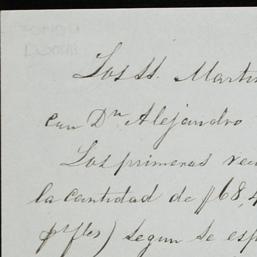 Los SS. Martin
con Dn Alejandro
Los primeros ven
la cantidad de $68,4
ptfles) segun se esp